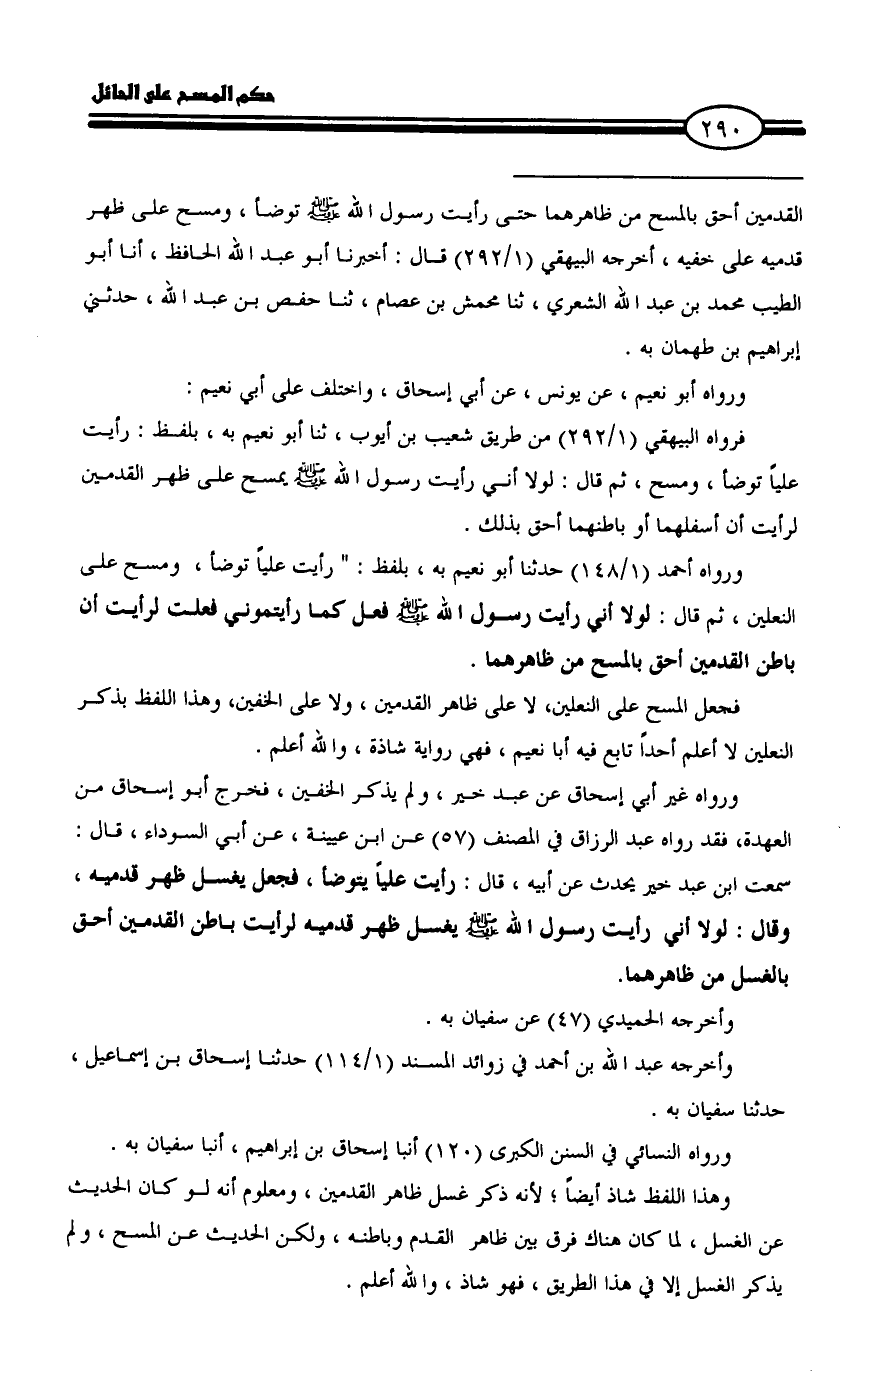 حكم المسح على الحائل
٢٩٠
القدمين أحق بالمسح من ظاهرهما حتى رأيت رسول الله ﷺ توضأ ، ومسح على ظهر
قدميه على خفيه ، أخرجه البيهقي (٢٩٢/١) قال : أخبرنا أبو عبد الله الحافظ ، أنا أبو
الطيب محمد بن عبد الله الشعري ، ثنا محمش بن عصام ، ثنا حفص بن عبد الله ، حدثني
إبراهيم بن طهمان به .
ورواه أبو نعيم ، عن يونس ، عن أبي إسحاق ، واختلف على أبي نعيم :
فرواه البيهقي (٢٩٢/١) من طريق شعيب بن أيوب ، ثنا أبو نعيم به ، بلفظ : رأيت
علياً توضأ ، ومسح ، ثم قال : لولا أني رأيت رسول الله ﷺ يمسح على ظهر القدمين
لرأيت أن أسفلهما أو باطنهما أحق بذلك .
ورواه أحمد (١٤٨/١) حدثنا أبو نعيم به ، بلفظ : " رأيت علياً توضأ ، ومسح على
النعلين ، ثم قال : لولا أني رأيت رسول الله ﷺ فعل كما رأيتموني فعلت لرأيت أن
باطن القدمين أحق بالمسح من ظاهرهما .
فجعل المسح على النعلين، لا على ظاهر القدمين ، ولا على الخفين، وهذا اللفظ بذكر
النعلين لا أعلم أحداً تابع فيه أبا نعيم ، فهي رواية شاذة ، والله أعلم .
ورواه غير أبي إسحاق عن عبد خير ، ولم يذكر الخفين ، فخرج أبو إسحاق من
العهدة، فقد رواه عبد الرزاق في المصنف (٥٧) عن ابن عيينة ، عن أبي السوداء ، قال :
سمعت ابن عبد خير يحدث عن أبيه ، قال : رأيت علياً يتوضأ ، فجعل يغسل ظهر قدميه ،
وقال : لولا أني رأيت رسول الله ﷺ يغسل ظهر قدميه لرأيت باطن القدمين أحق
بالغسل من ظاهرهما.
وأخرجه الحميدي (٤٧) عن سفيان به .
وأخرجه عبد الله بن أحمد في زوائد المسند (١١٤/١) حدثنا إسحاق بن إسماعيل ،
حدثنا سفيان به .
ورواه النسائي في السنن الكبرى (١٢٠) أنبا إسحاق بن إبراهيم ، أنبا سفيان به .
وهذا اللفظ شاذ أيضاً ؛ لأنه ذكر غسل ظاهر القدمين ، ومعلوم أنه لو كان الحديث
عن الغسل ، لما كان هناك فرق بين ظاهر القدم وباطنه ، ولكن الحديث عن المسح ، ولم
يذكر الغسل إلا في هذا الطريق ، فهو شاذ ، والله أعلم .